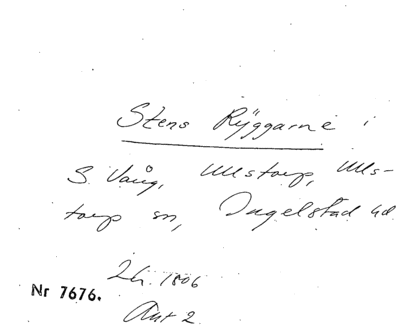 Stens Ryggarne i
S. Vång, Ullstorp, Ulls-
torp sn, Ingelstad hd
Lh. 1806
Nr 7676.
Akt 2